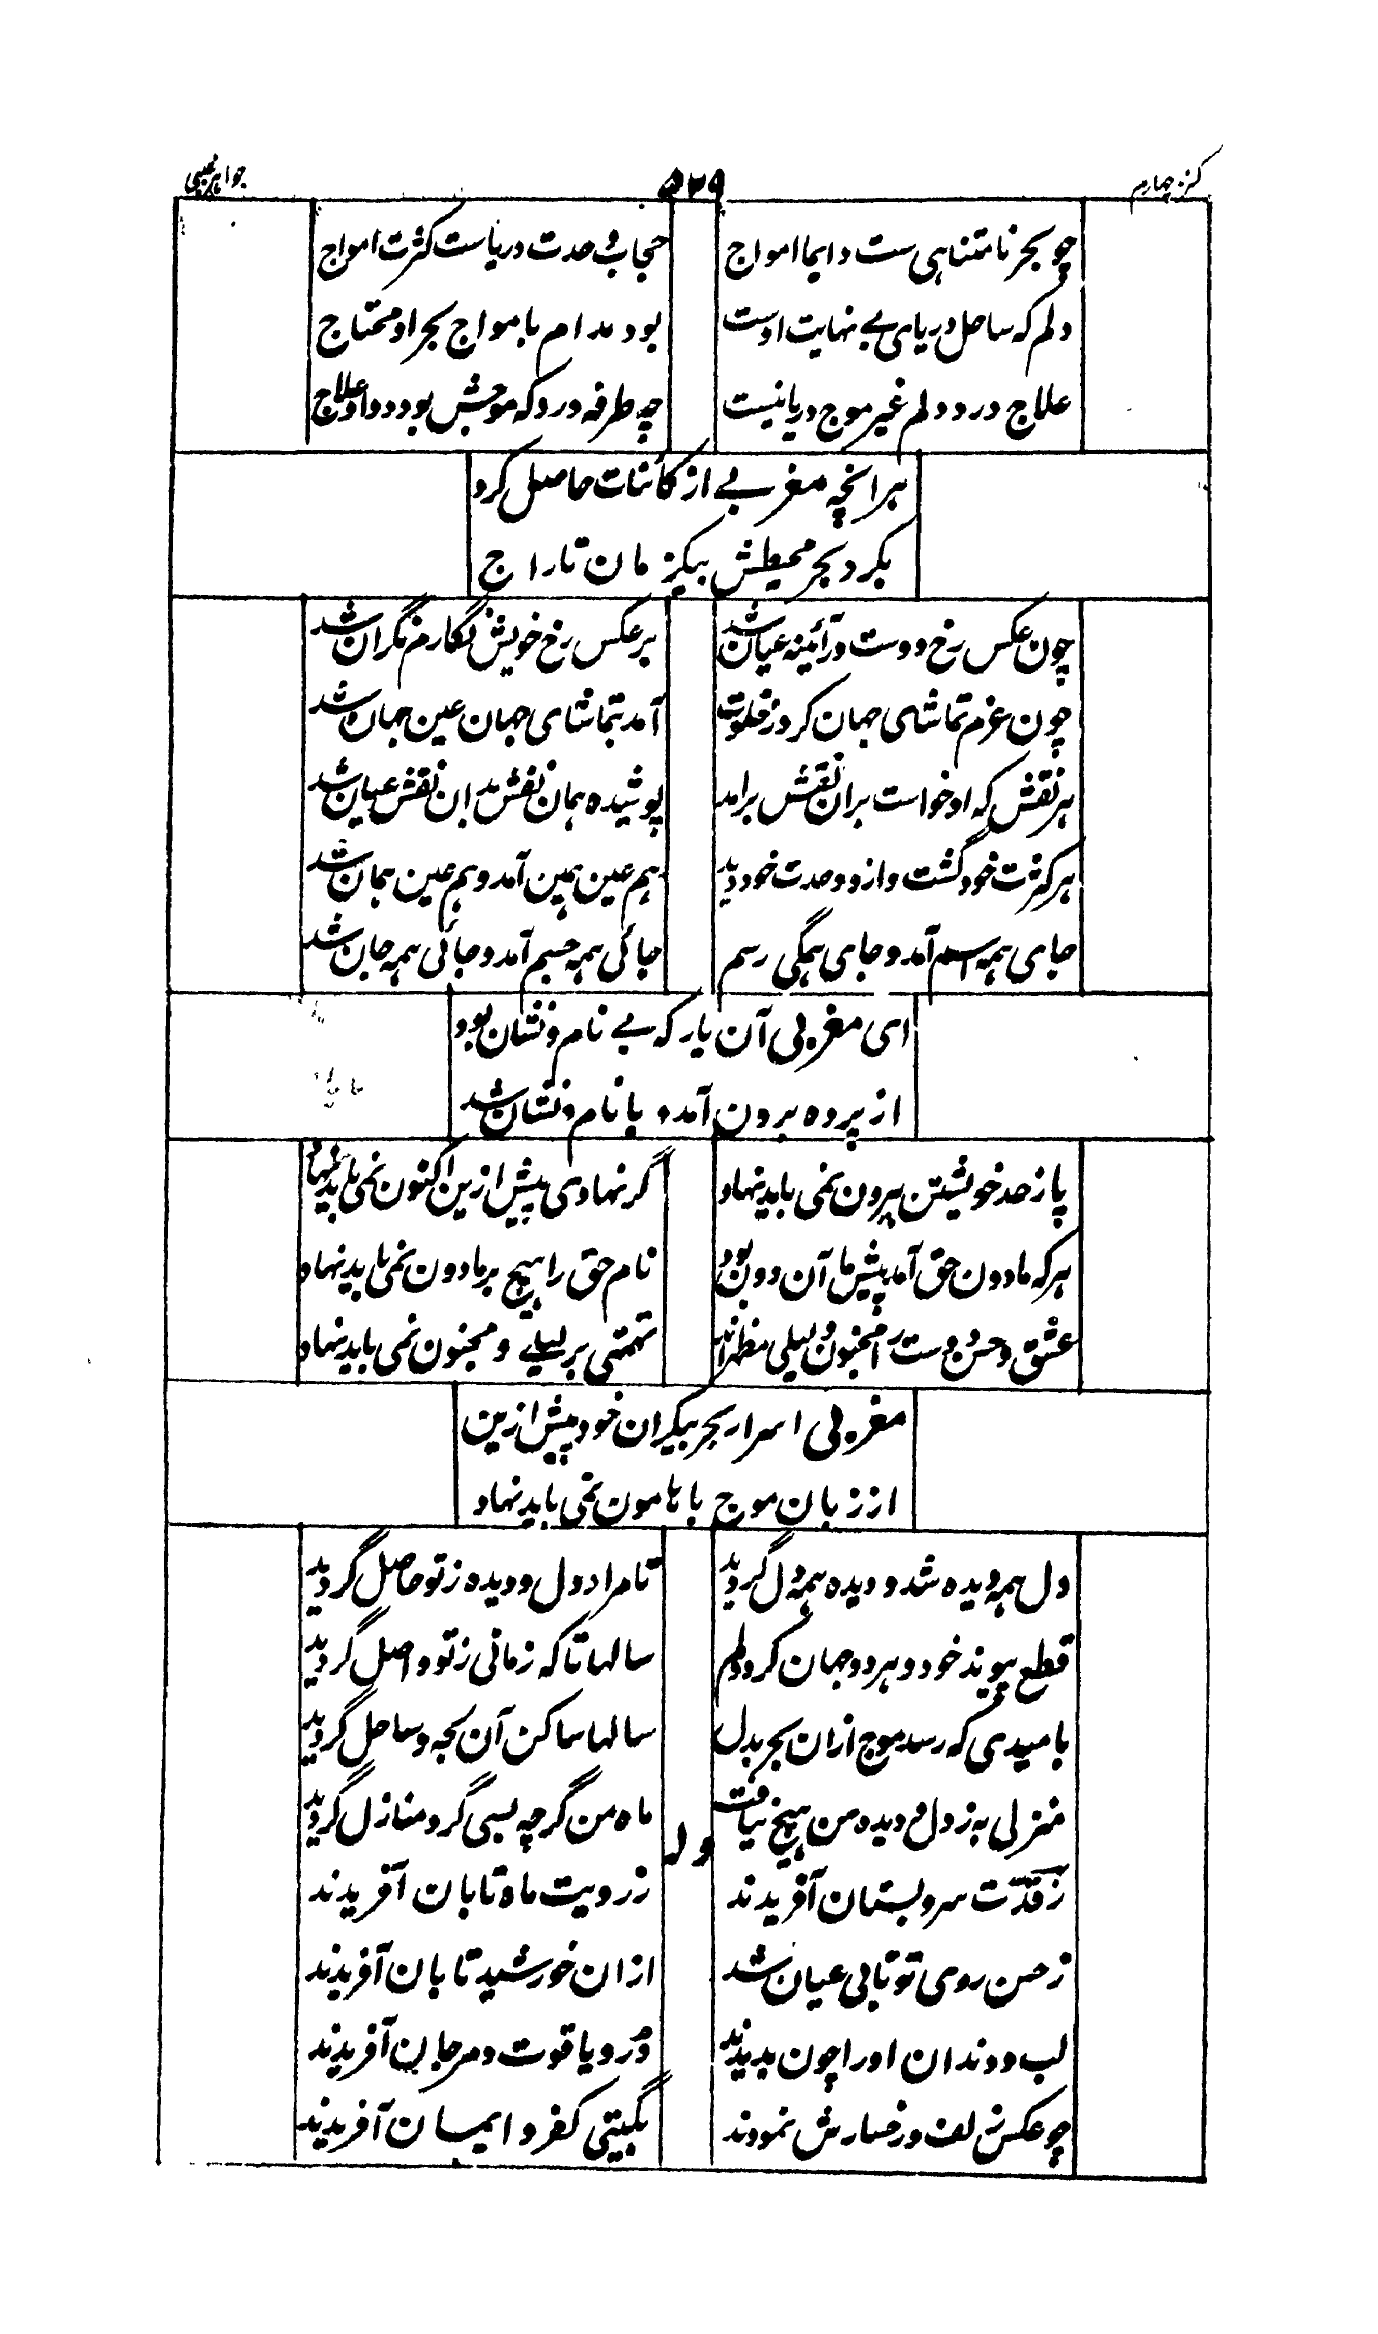 کنز چهارم
۵۲۹
جواهر غیبی
چو بحر نامتناهی ست دایما امواج
حجاب وحدت دریاست کثرت امواج
دلم که ساحل دریای بے نهایت اوست
بود مدام بامواج بحر او محتاج
علاج درد دلم غیر موج دریا نیست
چه طرفه درد که موجش بود دوا و علاج
هرانچه مغربے از کائنات حاصل کرد
بکرد بحر محیطش بیکزمان تاراج
چون عکس رخ دوست در آئینه عیان شد
بر عکس رخ خویش نگارم نگران شد
چون عزم تماشای جهان کرد ز خلوت
آمد بتماشای جهان عین جهان شد
هر نقش که او خواست بران نقش برامد
پوشیده همان نقش بدان نقش عیان شد
هم کثرت خود گشت و ازو وحدت خود دید
هم عین همین آمد و هم عین همان شد
جای همه اسم آمد و جای همگی رسم
جائی همه جسم آمد و جائی همه جان شد
ای مغربی آن یار که بے نام و نشان بود
از پرده برون آمد و با نام و نشان شد
پا ز حد خویشتن بیرون نمی باید نهاد
گر نهادی پیش ازین اکنون نمی باید نهاد
هر که مادون حق آمد پیش ما آن دون بود
نام حق را هیچ بر مادون نمی باید نهاد
عشق و حسن دوست را مجنون و لیلی مظهراند
تهمتی بر لیلے و مجنون نمی باید نهاد
مغربی اسرار بحر بیکران خود پیش ازین
از زبان موج با هامون نمی باید نهاد
دل همه دیده شد و دیده همه دل گردید
تا مراد دل و دیده ز تو حاصل گردید
قطع پیوند خود و هر دو جهان کرد دلم
سالها تا که زمانی ز تو واصل گردید
بامیدی که رسد موج ازان بحر بدل
سالها ساکن آن لجه و ساحل گردید
منزلی به ز دل و دیده من هیچ نیافت
ماه من گرچه بسی گرد منازل گردید
وله
ز قدّت سرو بستان آفریدند
ز رویت ماه تابان آفریدند
ز حسن روی تو تابی عیان شد
ازان خورشید تابان آفریدند
لب و دندان او را چون بدیدند
دُر و یاقوت و مرجان آفریدند
چو عکس زلف و رخسارش نمودند
بگیتی کفر و ایمان آفریدند